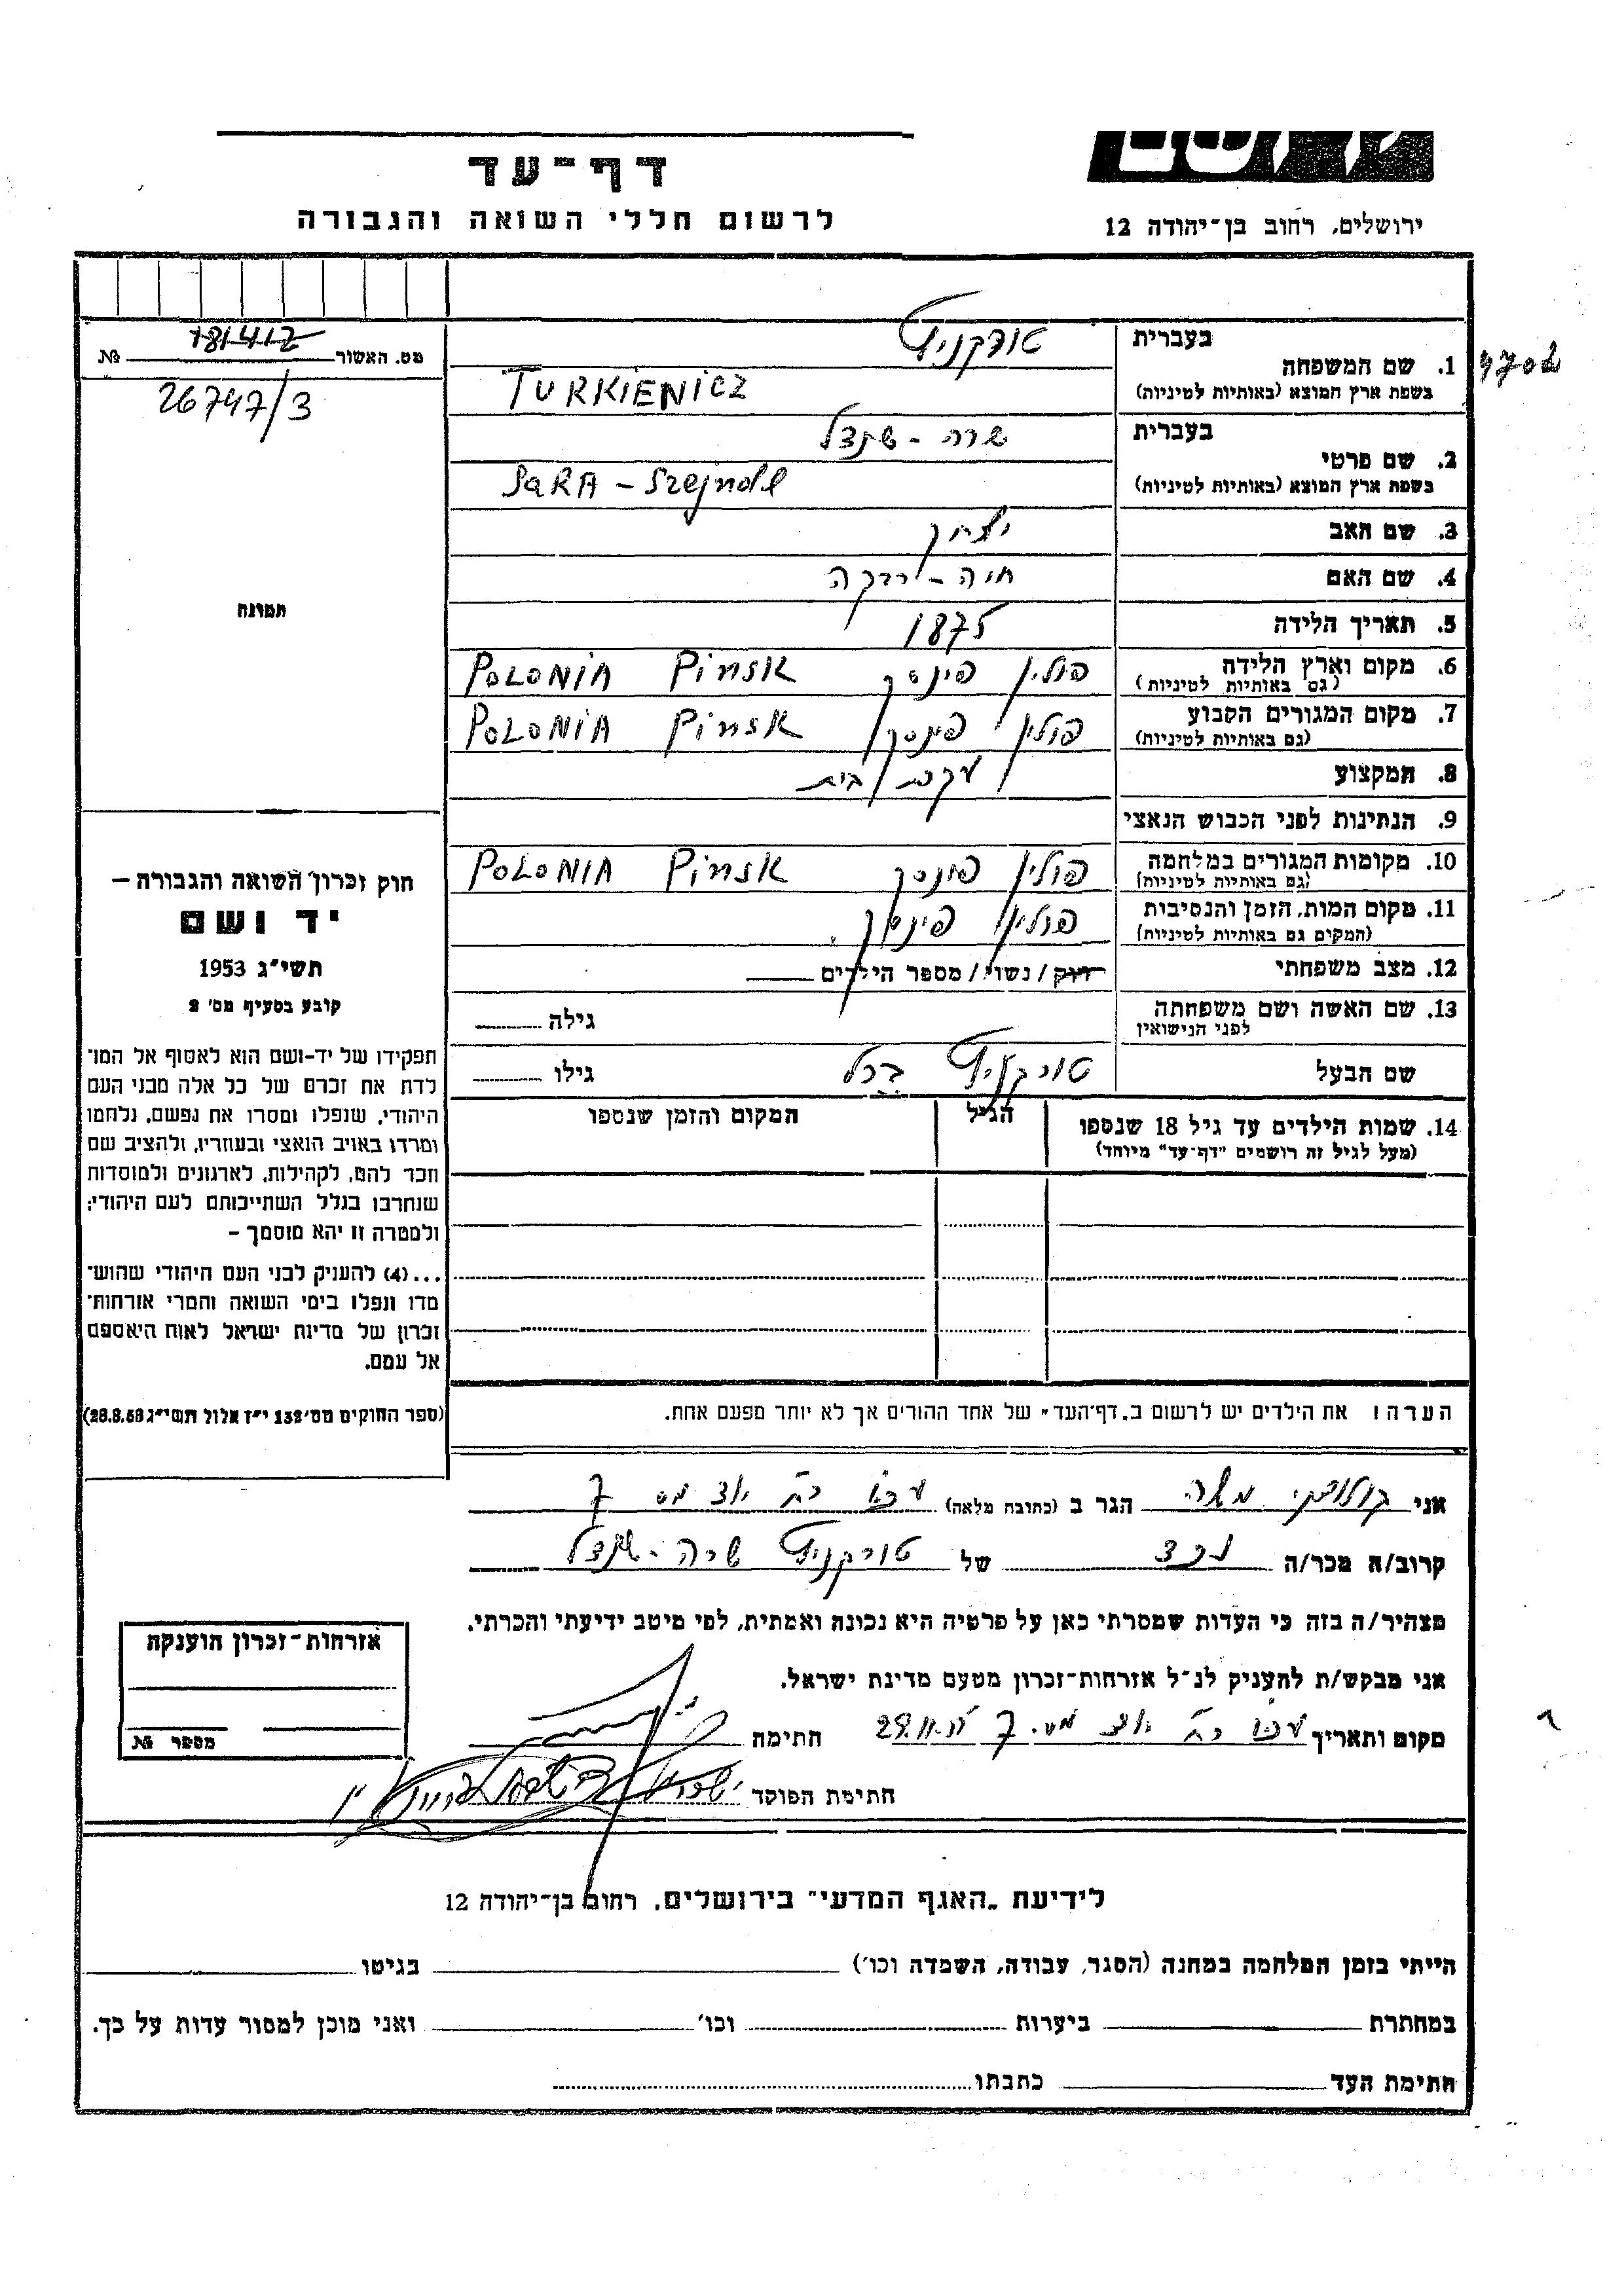 דף-עד
לרשום חללי השואה והגבורה
ירושלים, רחוב בן-יהודה 12
מס. האשור № 181412
26747/3
תמונה
4702
בעברית טורקניץ
1. שם המשפחה
בשפת ארץ המוצא (באותיות לטיניות) TURKIENICZ
בעברית שרה - שינדל
2. שם פרטי
בשפת ארץ המוצא (באותיות לטיניות) SaRA - Szejndl
3. שם האב יצחק
4. שם האם חיה - רבקה
5. תאריך הלידה 1875
6. מקום וארץ הלידה פולין פינסק Pinsk POLONIA
(גם באותיות לטיניות)
7. מקום המגורים הקבוע פולין פינסק Pinsk POLONIA
(גם באותיות לטיניות)
8. המקצוע עקרת בית
9. הנתינות לפני הכבוש הנאצי
10. מקומות המגורים במלחמה פולין פינסק Pinsk POLONIA
(גם באותיות לטיניות)
11. מקום המות, הזמן והנסיבות פולין פינסק.
(המקום גם באותיות לטיניות)
12. מצב משפחתי רווק / נשוי / מספר הילדים
13. שם האשה ושם משפחתה גילה
לפני הנישואין
שם הבעל טורקניץ ברל גילו
14. שמות הילדים עד גיל 18 שנספו הגיל המקום והזמן שנספו
(מעל לגיל זה רושמים "דף-עד" מיוחד)
חוק זכרון השואה והגבורה –
יד ושם
תשי"ג 1953
קובע בסעיף מס' 2
תפקידו של יד-ושם הוא לאסוף אל המו־
לדת את זכרם של כל אלה מבני העם
היהודי, שנפלו ומסרו את נפשם, נלחמו
ומרדו באויב הנאצי ובעוזריו, ולהציב שם
וזכר להם, לקהילות, לארגונים ולמוסדות
שנחרבו בגלל השתייכותם לעם היהודי;
ולמטרה זו יהא מוסמך –
...(4) להעניק לבני העם היהודי שהוש־
מדו ונפלו בימי השואה והמרי אזרחות־
זכרון של מדינת ישראל לאות היאספם
אל עמם.
(ספר החוקים מס' 132 י"ז אלול תשי"ג 28.8.53)
הערה: את הילדים יש לרשום ב„דף-העד" של אחד ההורים אך לא יותר מפעם אחת.
אני משה הגר ב (כתובת מלאה) עכו מס 7
קרוב/ה מכר/ה נכד של טורקניץ שרה - שינדל
מצהיר/ה בזה כי העדות שמסרתי כאן על פרטיה היא נכונה ואמתית, לפי מיטב ידיעתי והכרתי.
אני מבקש/ת להעניק לנ"ל אזרחות-זכרון מטעם מדינת ישראל.
מקום ותאריך עכו מס. 7 חתימה
חתימת הפוקד
אזרחות-זכרון הוענקה
מספר №
לידיעת „האגף המדעי" בירושלים, רחוב בן-יהודה 12
הייתי בזמן המלחמה במחנה (הסגר, עבודה, השמדה וכו') בגיטו
במחתרת ביערות וכו' ואני מוכן למסור עדות על כך.
חתימת העד כתבתו